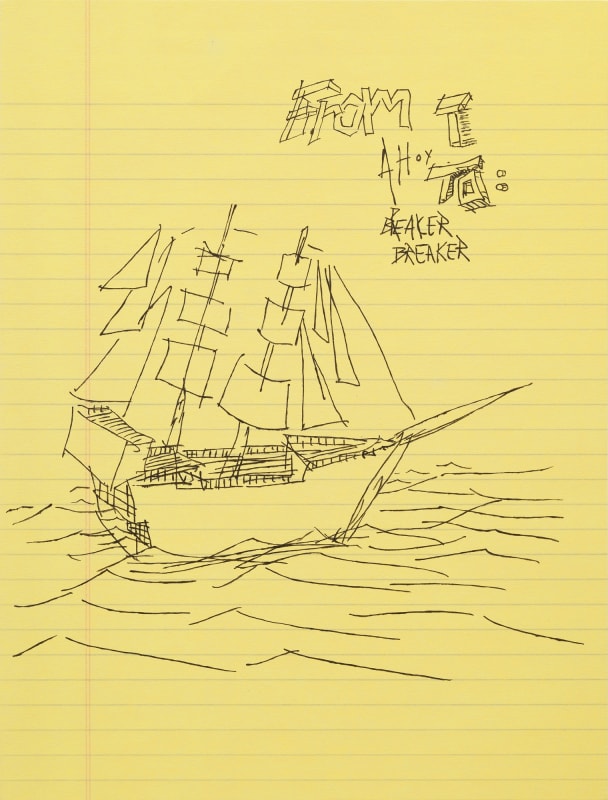 From
AHOY TO:
BREAKER
BREAKER